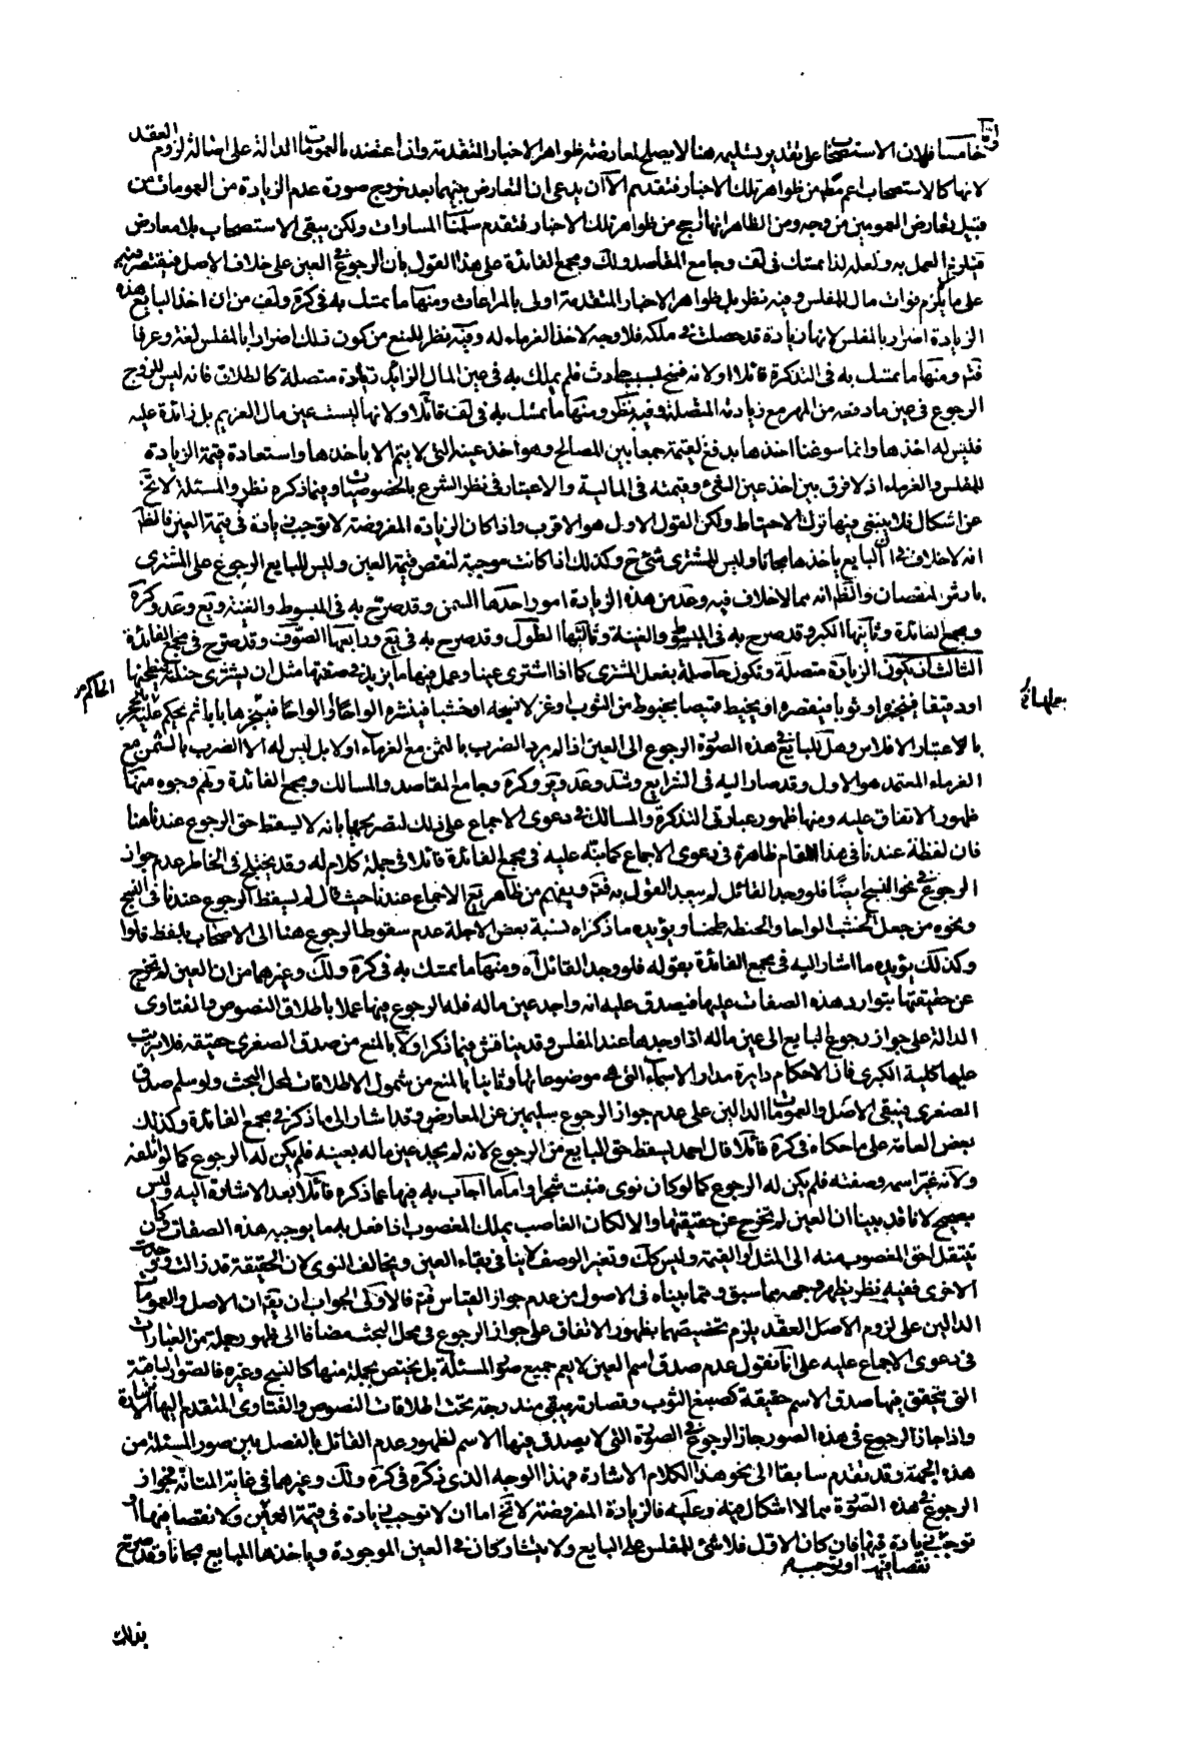 خامسا فلان الاستصحاب على تقدير تسليمه هنا لا يصلح لمعارضة ظواهر الاخبار المتقدمة واذا اعتضد بالعمومات الدالة على اصالة لزوم العقد
لانها كالاستصحاب اعم مطلقا من ظواهر تلك الاخبار فتقدم الا ان يدعى ان التعارض بينهما بعد خروج صورة عدم الزيادة من العمومات من
قبيل تعارض العمومين من وجه ومن الظاهر انها ارجح من ظواهر تلك الاخبار فتقدم سلمنا المساوات ولكن يبقى الاستصحاب بلا معارض
فيلزم العمل به ولعله لذا تمسك فى لف وجامع المقاصد ولك ومجمع الفائدة على هذا القول بان الرجوع فى العين على خلاف الاصل فيقتصر فيه
على ما لم يلزم فوات مال للمفلس وفيه نظر بل ظواهر الاخبار المتقدمة اولى بالمراعات ومنها ما تمسك به فى كرة ولف من ان اخذ البايع هذه
الزيادة اضرار بالمفلس لانها زيادة قد حصلت فى ملكه فلا وجه لاخذ الغرماء له وفيه نظر للمنع من كون ذلك اضرارا بالمفلس لغة وعرفا
فتم ومنها ما تمسك به فى التذكرة قائلا اولا انه فسخ بسبب حادث فلم يملك به فى عين المال الزائد زيادة متصلة كالطلاق فانه ليس للزوج
الرجوع فى عين ما دفعه من المهر مع زيادته المتصلة وفيه نظر ومنها ما تمسك به فى لف قائلا ولانها ليست عين مال الغريم بل زائدة عليه
فليس له اخذها وانما سوغنا اخذها بدفع القيمة جمعا بين المصالح وهو اخذ عينه التى لا يتم الا باخذها واستعادة قيمة الزيادة
للمفلس والغرماء اذ لا فرق بين اخذ عين الشىء وقيمته فى المالية والاعتبار فى نظر الشرع بالخصوصيات وفيما ذكره نظر والمسئلة لا تخ
عن اشكال فلا ينبغى فيها ترك الاحتياط ولكن القول الاول هو الاقرب واذا كان الزيادة المفروضة لا توجب زيادة فى قيمة العين فالظ
انه لا خلاف فى ان البايع ياخذها مجانا وليس للمشترى شئ ح وكذلك اذا كانت موجبة لنقص قيمة العين وليس للبايع الرجوع على المشترى
بارش النقصان والظ انه مما لا خلاف فيه وعد من هذه الزيادة امور احدها السمن وقد صرح به فى المبسوط والغنية ويع وعد وكرة
ومجمع الفائدة وثانيها الكبر وقد صرح به فى المبسوط والغنية وثالثها الطول وقد صرح به فى يع ورابعها الصوف وقد صرح فى مجمع الفائدة
الثالث ان يكون الزيادة متصلة وتكون حاصلة بفعل المشترى كما اذا اشترى عينا وعمل فيها ما يزيد فى صفتها مثل ان يشترى حنطة فيطحنها
او دقيقا فيخبزه او ثوبا فيقصره او يخيط قميصا بخيوط من الثوب او غزلا نسجه او خشبا فينشره الواحا او الواحا فينجرها بابا ثم يحكم عليه بالحجر
بالاعتبار الافلاس وهل للبايع فى هذه الصورة الرجوع الى العين اذا لم يرد الضرب بالثمن مع الغرماء او لا بل ليس له الا الضرب بالثمن مع
الغرماء المعتمد هو الاول وقد صار اليه فى الشرايع وشد وعد وير وكرة وجامع المقاصد والمسالك ومجمع الفائدة ولهم وجوه منها
ظهور الاتفاق عليه ومنها ظهور عبارتى التذكرة والمسالك فى دعوى الاجماع على ذلك لتصريحهما بانه لا يسقط حق الرجوع عندنا هنا
فان لفظة عندنا فى هذا المقام ظاهرة فى دعوى الاجماع كما نبه عليه فى مجمع الفائدة قائلا فى جملة كلام له وقد يختلج فى الخاطر عدم جواز
الرجوع فى نحو النسج ايضا فلو وجد القائل لم يبعد القول به فتم ويفهم من ظاهر يع الاجماع عندنا حيث قال لم يسقط الرجوع عندنا فى النسج
ونحوه من جعل الخشب الواحا والحنطة طحنا ويؤيده ما ذكراه نسبة بعض الاجلة عدم سقوط الرجوع هنا الى الاصحاب بلفظ قالوا
وكذلك يؤيده ما اشار اليه فى مجمع الفائدة بقوله فلو وجد القائل اه ومنها ما تمسك به فى كرة ولك وغيرهما من ان العين لم تخرج
عن حقيقتها بتوارد هذه الصفات عليها فيصدق عليه انه واجد عين ماله فله الرجوع فيها عملا باطلاق النصوص والفتاوى
الدالة على جواز رجوع البايع الى عين ماله اذا وجدها عند المفلس وقد يناقش فيما ذكر اولا بالمنع من صدق الصغرى حقيقة فلا يترتب
عليها كلية الكبرى فان الاحكام دايرة مدار الاسماء التى هى موضوعاتها وثانيا بالمنع من شمول الاطلاقات لمحل البحث ولو سلم صدق
الصغرى فيبقى الاصل والعمومات الدالين على عدم جواز الرجوع سليمين عن المعارض وقد اشار الى ما ذكر فى مجمع الفائدة وكذلك
بعض العامة على ما حكاه فى كرة قائلا قال احمد يسقط حق البايع من الرجوع لانه لم يجد عين ماله بعينه فلم يكن له الرجوع كما لو اتلفه
ولانه غير اسمه وصفته فلم يكن له الرجوع كما لو كان نوى فنبت شجرا واما ما اجاب به فيها عما ذكره قائلا بعد الاشارة اليه وليس
بصحيح لانا قد بينا ان العين لم تخرج عن حقيقتها والا لكان الغاصب يملك المغصوب اذا فعل به ما يوجب هذه الصفات وكان
ينتقل حق المغصوب منه الى المثل او القيمة وليس كك وتغير الوصف لا ينافى بقاء العين ويخالف النوى لان الحقيقة قد زالت ووجدت
الاخرى ففيه نظر يظهر وجهه مما سبق ومما بيناه فى الاصول من عدم جواز القياس فتم فالاولى الجواب ان يقال ان الاصل والعمومات
الدالين على لزوم الاصل العقد يلزم تخصيصهما بظهور الاتفاق على جواز الرجوع فى محل البحث مضافا الى ظهور جملة من العبارات
فى دعوى الاجماع عليه على انا نقول عدم صدق اسم العين لا يعم جميع صور المسئلة بل يختص بجملة منها كالنسج وغيره فالصور الباقية
التى يتحقق فيها صدق الاسم حقيقة كصبغ الثوب وقصارته يبقى مندرجة تحت اطلاقات النصوص والفتاوى المتقدم اليها الاشارة
واذا جاز الرجوع فى هذه الصور جاز الرجوع فى الصورة التى لا يصدق فيها الاسم لظهور عدم القائل بالفصل بين صور المسئلة من
هذه الجهة وقد تقدم سابقا الى نحو هذا الكلام الاشارة فهذا الوجه الذى ذكره فى كرة ولك وغيرهما فى غاية المتانة فجواز
الرجوع فى هذه الصورة مما لا اشكال فيه وعليه فالزيادة المفروضة لا تخ اما ان لا توجب زيادة فى قيمة العين ولا نقصا فيها او
توجب زيادة فيها فان كان الاول فلا شئ للمفلس على البايع ولا يشاركان فى العين الموجودة وياخذها البايع مجانا وقد صرح
نقصا فيها او توجب
بذلك